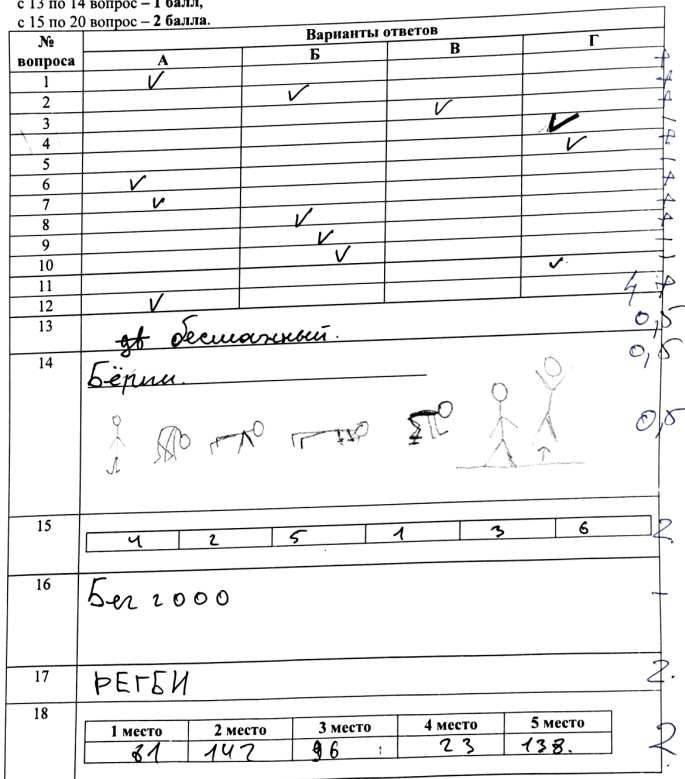 с 13 по 14 вопрос – 1 балл,
с 15 по 20 вопрос – 2 балла.
№ вопроса Варианты ответов
А Б В Г
1 ✓ +
2 ✓ +
3 ✓ +
4 ✓
5 ✓
6 ✓
7 ✓ +
8 ✓ +
9 ✓ –
10 ✓ –
11 ✓
12 ✓ 4 +
13 бесшажный. 0,5
14 Бёрпи. 0,5
0,5
15 4 2 5 1 3 6 2
16 Бег 2000 –
17 РЕГБИ 2.
18 1 место 2 место 3 место 4 место 5 место
81 142 96 23 138. 2.